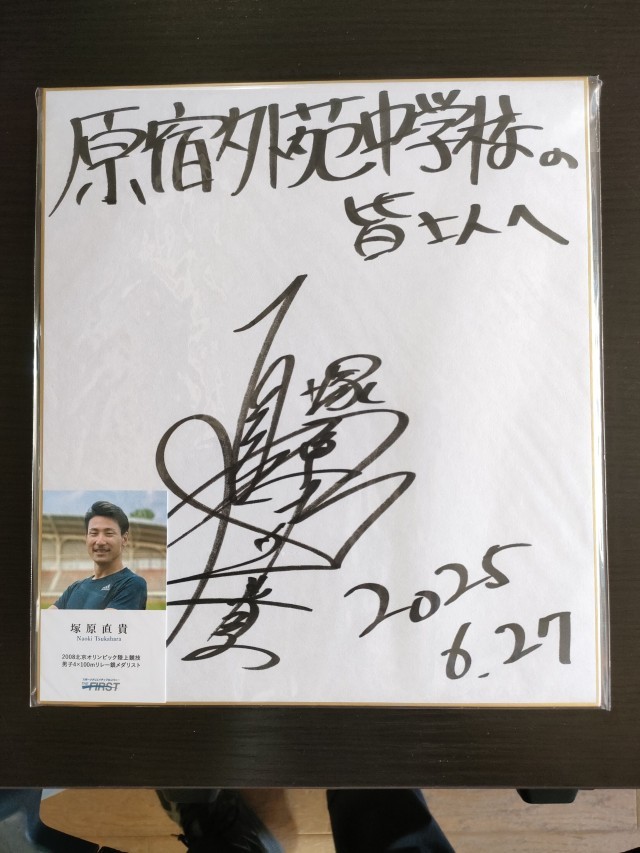 原宿外苑中学校の
皆さんへ
塚原直貴
2025
6.27
塚原直貴
Naoki Tsukahara
2008北京オリンピック陸上競技
男子4×100mリレー銀メダリスト
THE FIRST